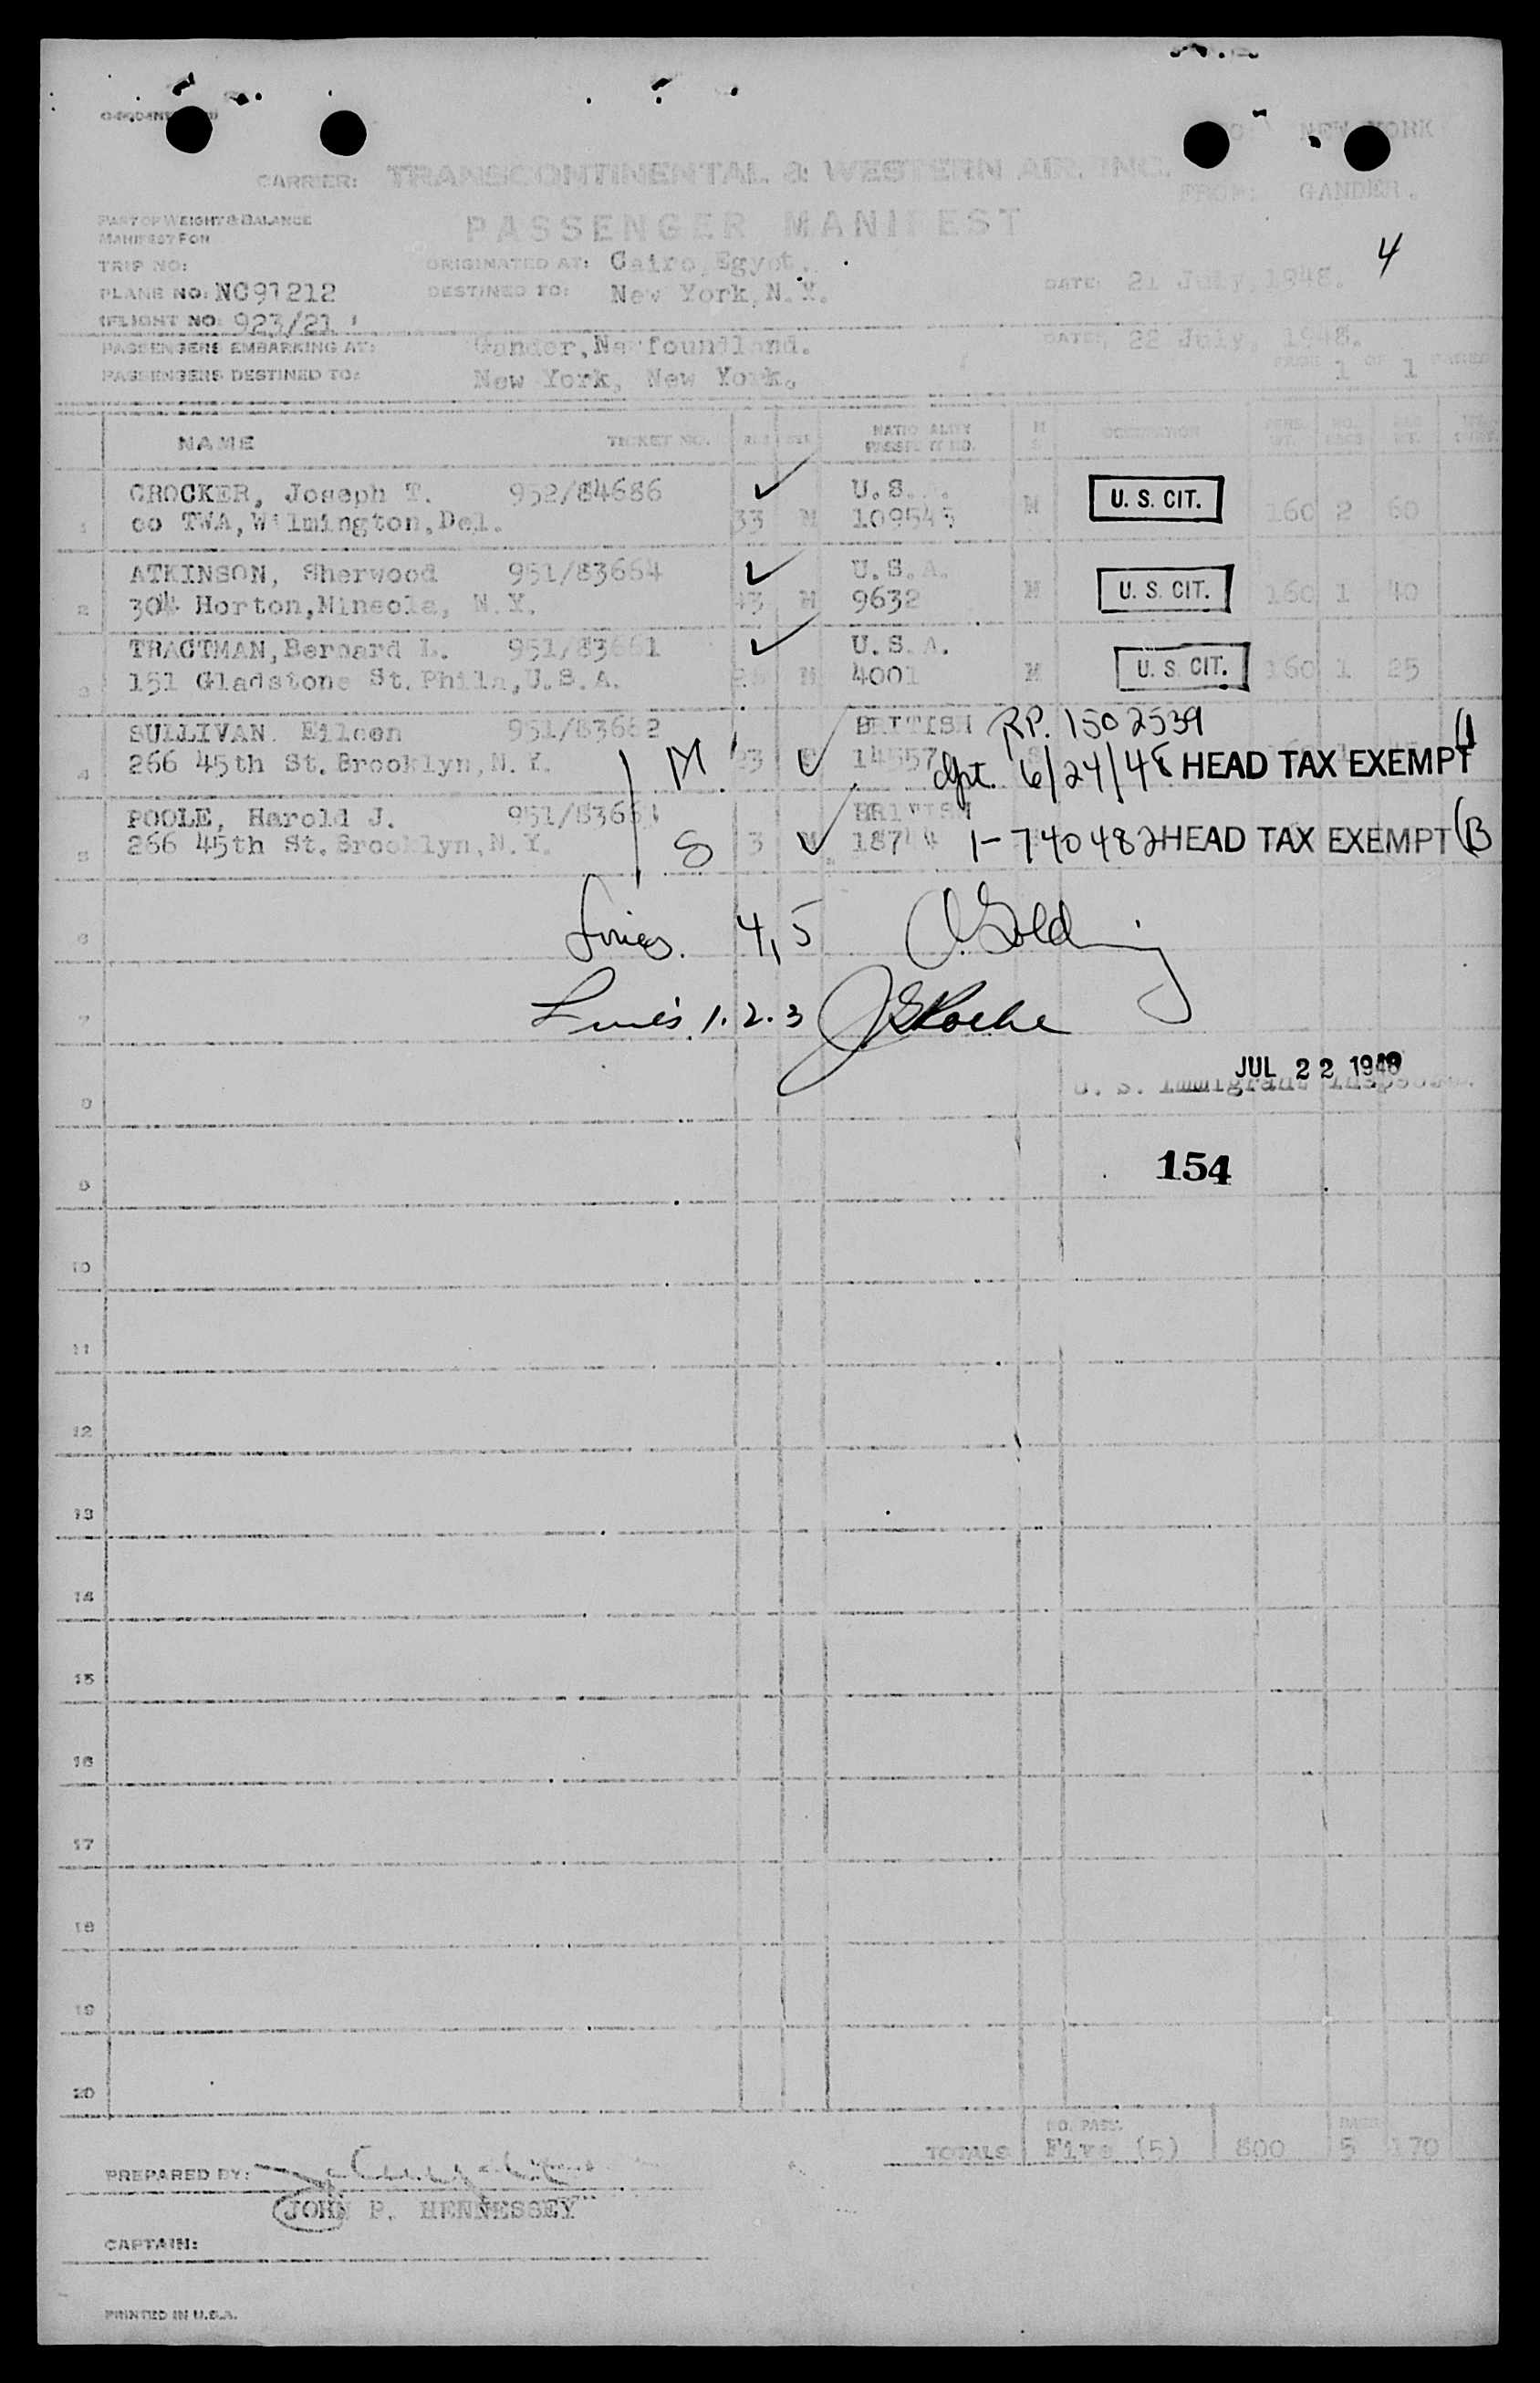 TO: NEW YORK
CARRIER: TRANSCONTINENTAL & WESTERN AIR, INC.
FROM: GANDER.
PART OF WEIGHT & BALANCE
MANIFEST FOR
PASSENGER MANIFEST
4
TRIP NO:
ORIGINATED AT: Cairo, Egypt.
PLANE NO: NC91212
DESTINED TO: New York, N.Y.
DATE: 21 July, 1948.
(FLIGHT NO: 923/21)
PASSENGERS EMBARKING AT: Gander, Newfoundland.
DATE: 22 July, 1948.
PASSENGERS DESTINED TO: New York, New York.
PAGE 1 OF 1 PAGES
NAME TICKET NO. AGE SEX NATIONALITY PASSPORT NO. M S OCCUPATION PERS. WT. NO. BAGS BAG WT.
1 CROCKER, Joseph T. 952/84686 U.S. U. S. CIT.
co TWA, Wilmington, Del. 33 M 109543 M 160 2 60
ATKINSON, Sherwood 951/83664 U.S.A. U. S. CIT.
2 304 Horton, Mineola, N.Y. 43 M 9632 M 160 1 40
TRACTMAN, Bernard L. 951/83661 U.S.A.
3 151 Gladstone St. Phila, U.S.A. M 4001 M U. S. CIT. 160 1 25
SULLIVAN. Eileen 951/83662 BRITISH R.P. 1502539
4 266 45th St. Brooklyn, N.Y. M 14557 6/24/48 HEAD TAX EXEMPT
POOLE, Harold J. BRITISH
5 266 45th St. Brooklyn, N.Y. S 3 M 1-740482 HEAD TAX EXEMPT (B
6 Lines. 4,5 Golding
7 Lines 1.2.3 Roche
JUL 22 1948
U. S. Immigrant Inspector.
8
154
9
10
11
12
13
14
15
16
17
18
19
20
TOTALS NO. PASS. Five (5) 800 BAGS 5 170
PREPARED BY:
JOHN P. HENNESSEY
CAPTAIN:
PRINTED IN U.S.A.